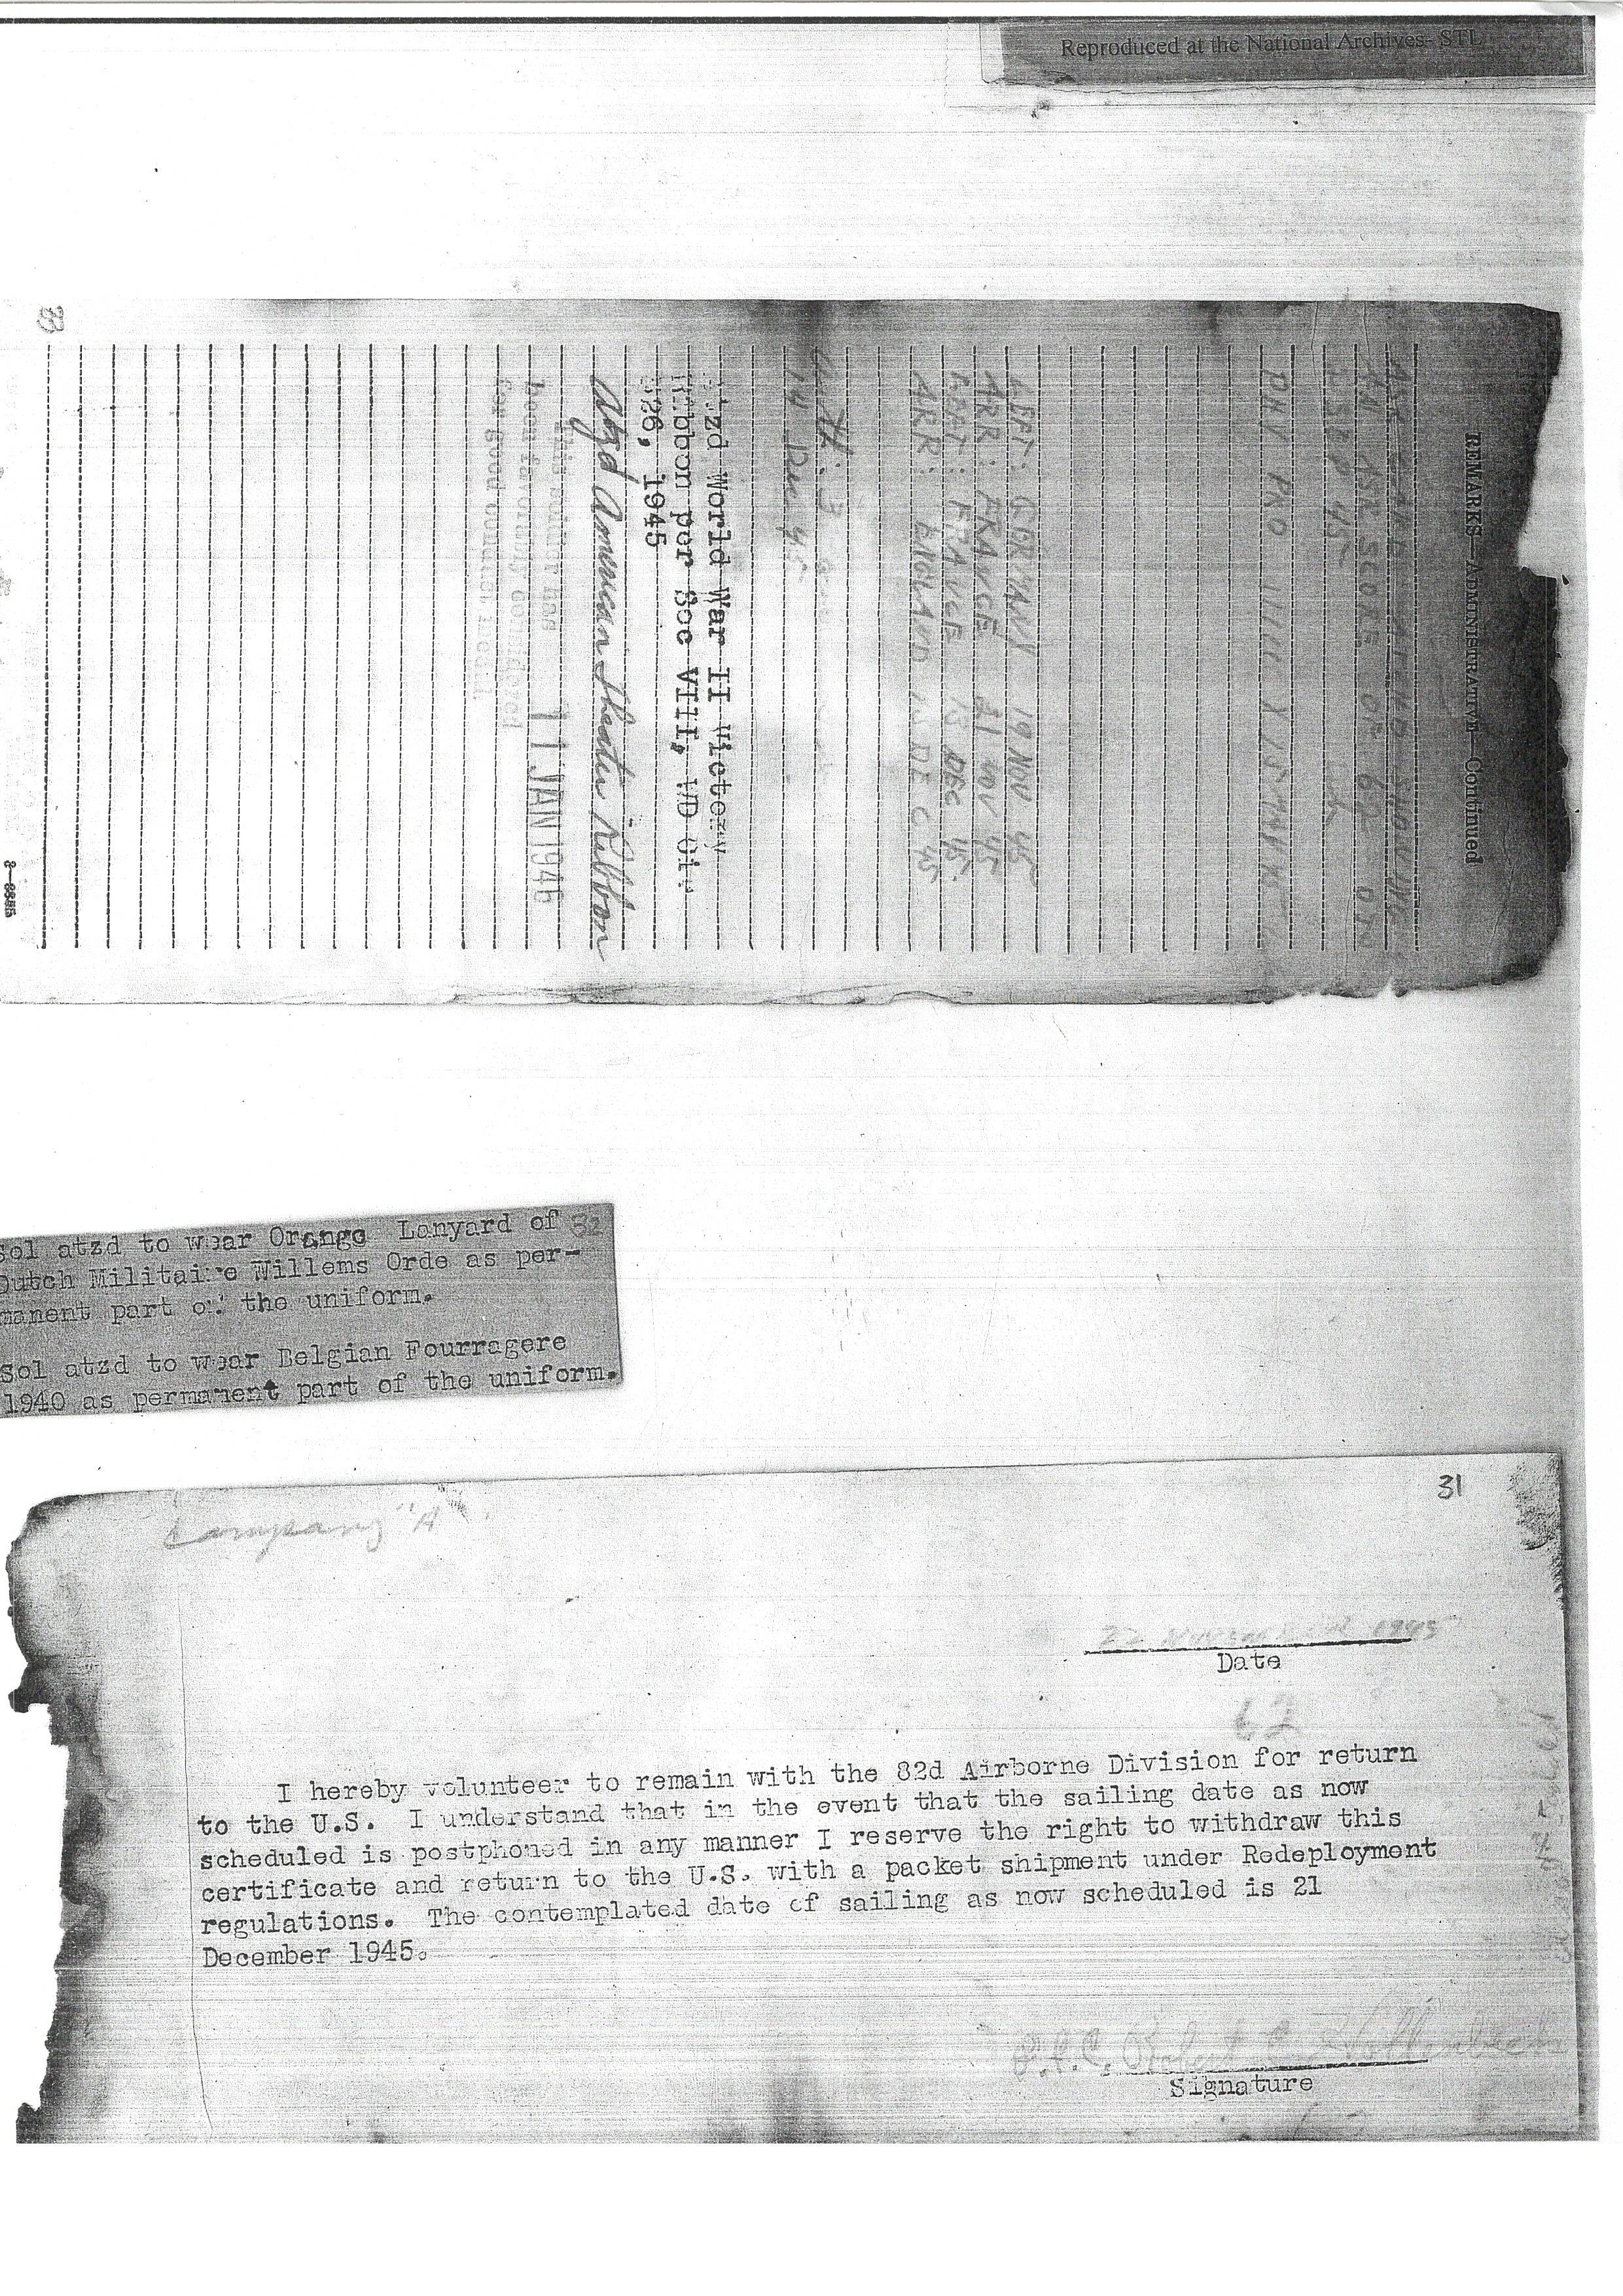 Reproduced at the National Archives- STL
33
REMARKS—ADMINISTRATIVE—Continued
ASR SCORE OF 62
SEP 45
LEFT: GERMANY 19 NOV 45
ARR: FRANCE 21 NOV 45
LEFT: FRANCE 13 DEC 45
ARR: ENGLAND DEC 45
Auth:
14 Dec 45
Atzd World War II Victory
Ribbon per Sec VIII, WD Cir
326, 1945
Atzd American Theater Ribbon
This soldier has
been favorably considered
for good conduct medal
11 JAN 1946
32
Sol atzd to wear Orange Lanyard of
Dutch Militaire Willems Orde as per-
manent part of the uniform.
Sol atzd to wear Belgian Fourragere
1940 as permanent part of the uniform.
31
Company "A"
22 November 1945
Date
62
I hereby volunteer to remain with the 82d Airborne Division for return
to the U.S. I understand that in the event that the sailing date as now
scheduled is postphoned in any manner I reserve the right to withdraw this
certificate and return to the U.S. with a packet shipment under Redeployment
regulations. The contemplated date of sailing as now scheduled is 21
December 1945.
P.F.C. Robert C. Hollenbech
Signature